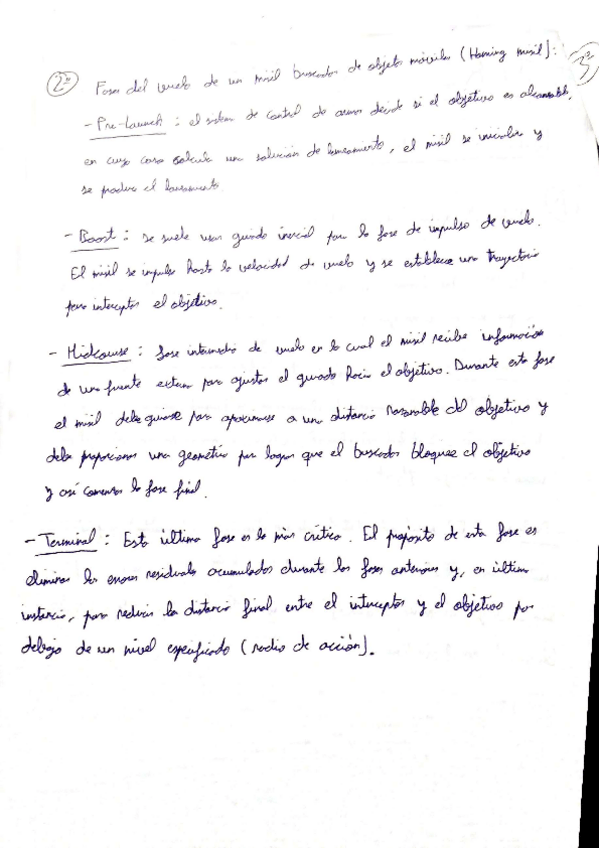 2º Fases del vuelo de un misil buscador de objetos móviles (Homing misil):
3º
- Pre-Launch: el sistema de control de armas decide si el objetivo es alcanzable,
en cuyo caso calcula una solución de lanzamiento, el misil se inicializa y
se produce el lanzamiento
- Boost: se suele usar guiado inercial para la fase de impulso de vuelo.
El misil se impulsa hasta la velocidad de vuelo y se establece una trayectoria
para interceptar el objetivo.
- Midcourse: fase intermedia de vuelo en la cual el misil recibe información
de una fuente externa para ajustar el guiado hacia el objetivo. Durante esta fase
el misil debe guiarse para aproximarse a una distancia razonable del objetivo y
debe proporcionar una geometría para lograr que el buscador bloquee el objetivo
y así comenzar la fase final.
- Terminal: Esta última fase es la más crítica. El propósito de esta fase es
eliminar los errores residuales acumulados durante las fases anteriores y, en última
instancia, para reducir la distancia final entre el interceptor y el objetivo por
debajo de un nivel especificado (radio de acción).